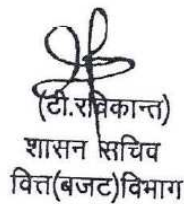 (टी.रविकान्त)
शासन सचिव
वित्त(बजट)विभाग